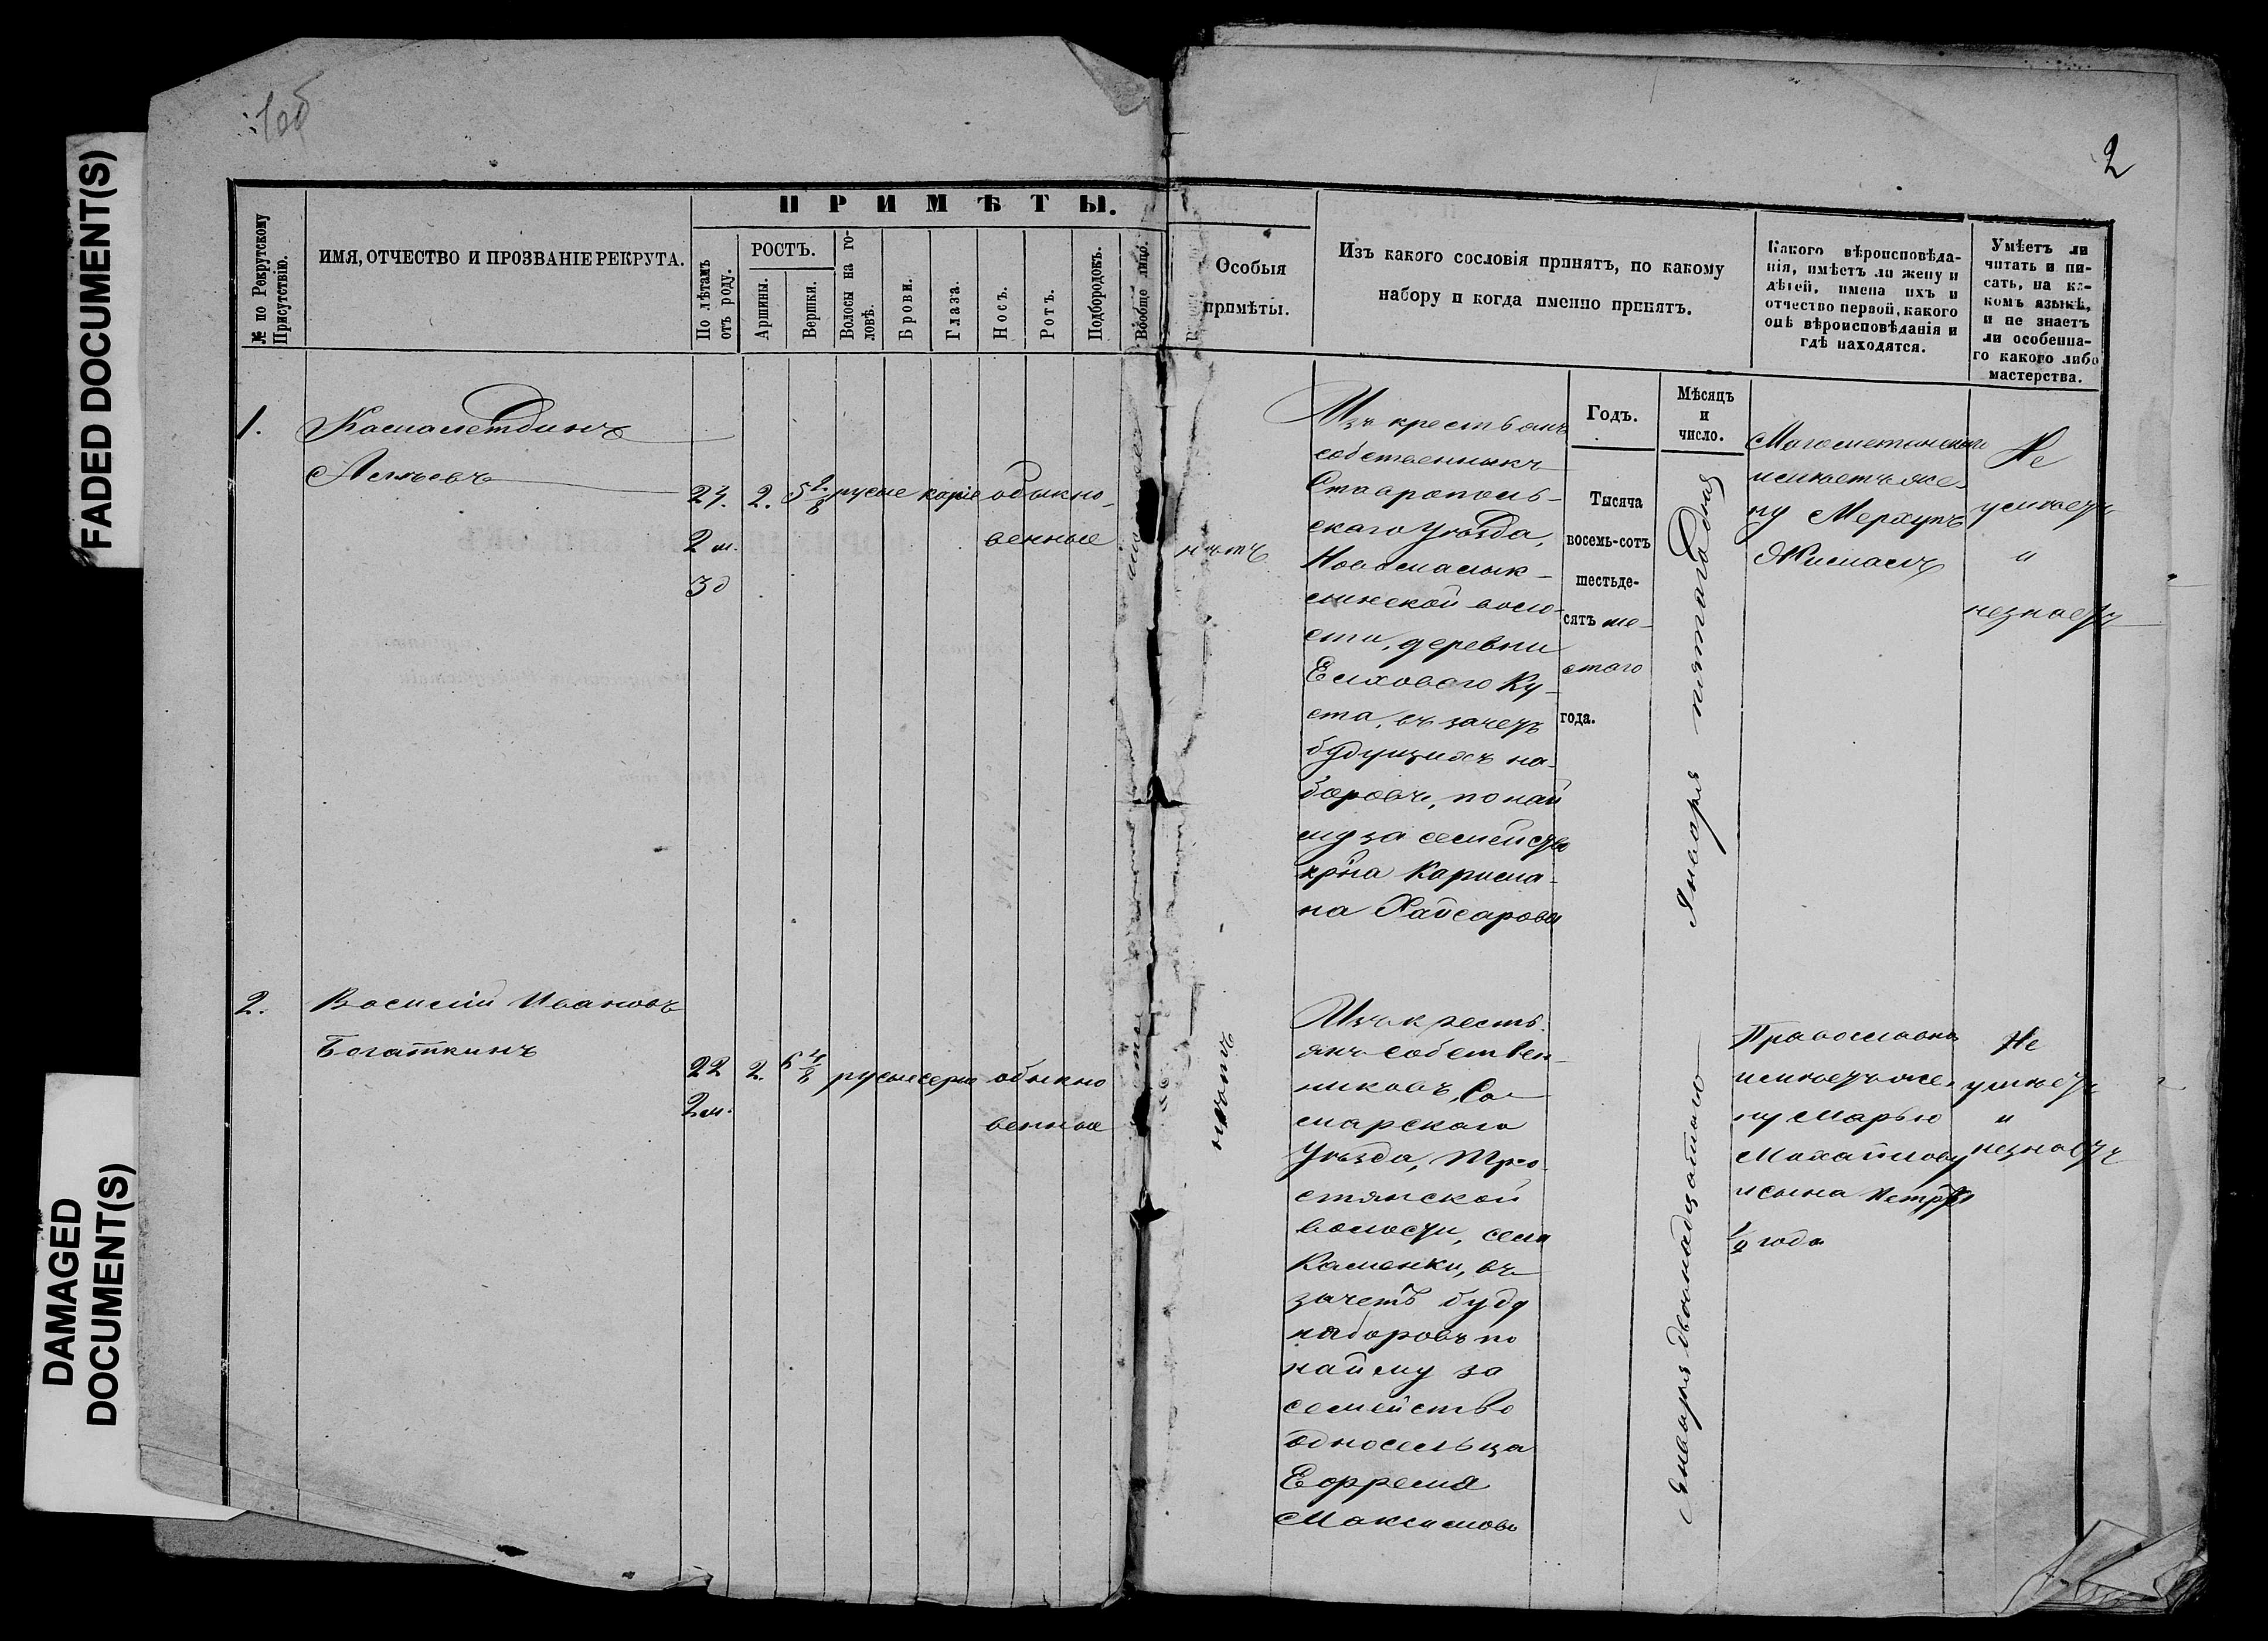 FADED DOCUMENT(S)
DAMAGED
DOCUMENT(S)
1об
2
№ по Рекрутскому
Присутствію.
ИМЯ, ОТЧЕСТВО И ПРОЗВАНІЕ РЕКРУТА.
ПРИМѢТЫ.
По лѣтамъ
отъ роду.
РОСТЪ.
Аршины.
Вершки.
Волосы на го-
ловѣ.
Брови.
Глаза.
Носъ.
Ротъ.
Подбородокъ.
Вообще лицо.
Особыя
примѣты.
Изъ какого сословія принятъ, по какому
набору и когда именно принятъ.
Какого вѣроисповѣда-
нія, имѣетъ ли жену и
дѣтей, имена ихъ и
отчество первой, какого
онѣ вѣроисповѣданія и
гдѣ находятся.
Умѣетъ ли
читать и пи-
сать, на ка-
комъ языкѣ,
и не знаетъ
ли особенна-
го какого либо
мастерства.
Годъ.
Мѣсяцъ
и
число.
1.
2 м.
3 д
2.
русые каріе обыкно-
венные
нѣтъ
Изъ крестьянъ
собственникъ
Ставрополь-
скаго Уѣзда,
Новомалык-
линской воло-
сти, деревни
Елховаго Ку-
ста, въ зачетъ
будущихъ на-
боровъ, по най
му за семейство
крна
Тысяча
восемь-сотъ
шестьде-
сятъ ше-
стаго
года.
Января пятаго дня
Магометанскаго
имѣетъ же-
ну
Не
умѣетъ
"
незнаетъ
2.
Василій Ивановъ
Богаткинъ
22
2 м.
2.
6 4/8
русые серые обыкно
венные
нѣтъ
Изъ кресть-
янъ собствен-
никовъ, Са-
марскаго
Уѣзда, Тро-
стянской
волости, села
Каменки, въ
зачетъ буду
наборовъ по
найему за
семейство
односельца
Ефрема
Максимова
Января двѣнадцатаго
Православна
имѣетъ же-
ну Марью
Михайлову
и сына Петра
1/2 года
Не
умѣетъ
"
незнаетъ